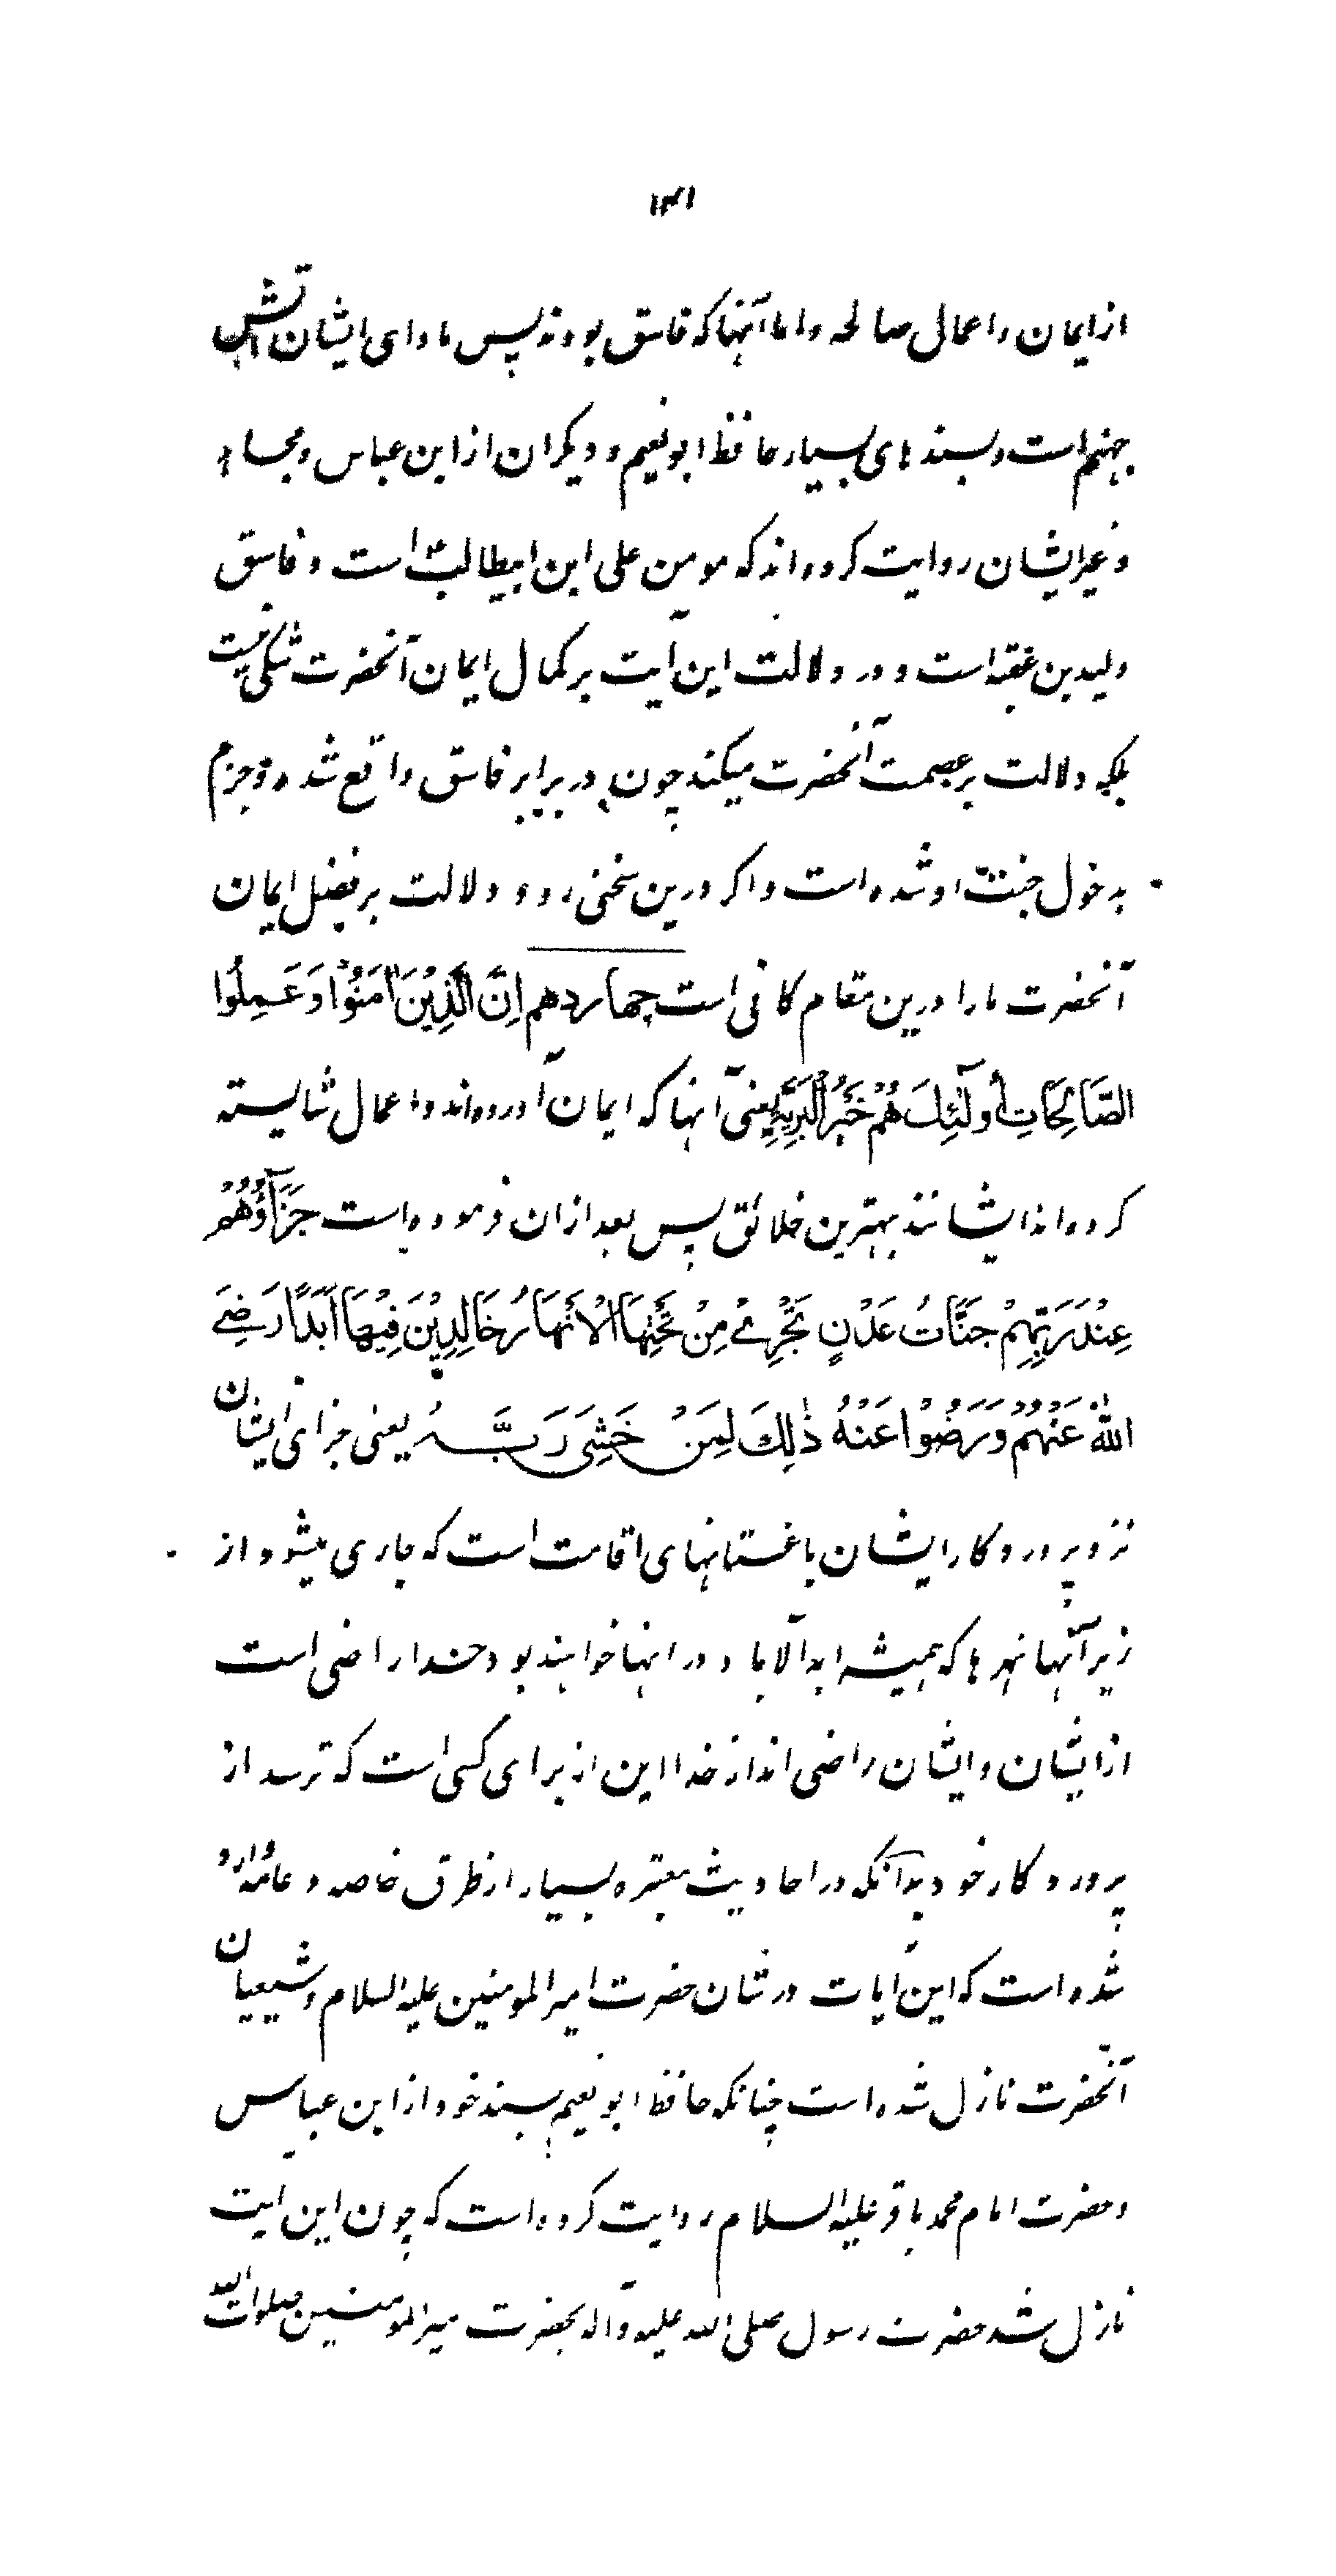 ۱۳۱
از ایمان و اعمال صالحه و اما آنها که فاسق بودند پس ماوای ایشان آتش
جهنم است و بسندهای بسیار حافظ ابو نعیم و دیکران از ابن عباس و مجاهد
و غیر ایشان روایت کرده‌اند که مومن علی ابن ابیطالب است و فاسق
ولید بن عقبه است و در دلالت این آیت بر کمال ایمان آنحضرت شکی نیست
بلکه دلالت بر عصمت آنحضرت میکند چون در برابر فاسق واقع شده و جزم
بدخول جنت او شده است و اکر درین سخنی رود دلالت بر فضل ایمان
آنحضرت ما را درین مقام کافی است چهاردهم اِنَّ الَّذِیْنَ اٰمَنُوْا وَعَمِلُوا
الصَّالِحَاتِ اُولٰٓئِكَ هُمْ خَیْرُ الْبَرِیَّةِ یعنی آنها که ایمان آورده‌اند و اعمال شایسته
کرده‌اند ایشانند بهترین خلائق پس بعد از ان فرموده است جَزَآؤُهُمْ
عِنْدَ رَبِّهِمْ جَنَّاتُ عَدْنٍ تَجْرِیْ مِنْ تَحْتِهَا الْاَنْهَارُ خَالِدِیْنَ فِیْهَا اَبَدًا رَضِیَ
اللّٰهُ عَنْهُمْ وَرَضُوْا عَنْهُ ذٰلِكَ لِمَنْ خَشِیَ رَبَّهُ یعنی جزای ایشان
نزد پروردکار ایشان باغستانهای اقامت است که جاری میشود از
زیر آنها نهرها که همیشه ابد الآباد در انها خواهند بود خدا راضی است
از ایشان و ایشان راضی اند از خدا این از برای کسی است که ترسد از
پروردکار خود بدآنکه در احادیث معتبره بسیار از طرق خاصه و عامه وارد
شده است که این آیات در شان حضرت امیر المومنین علیه السلام و شیعیان
آنحضرت نازل شده است چنانکه حافظ ابو نعیم بسند خود از ابن عباس
و حضرت امام محمد باقر علیه السلام روایت کرده است که چون این آیت
نازل شد حضرت رسول صلی الله علیه وآله بحضرت میر المومنین صلوات الله